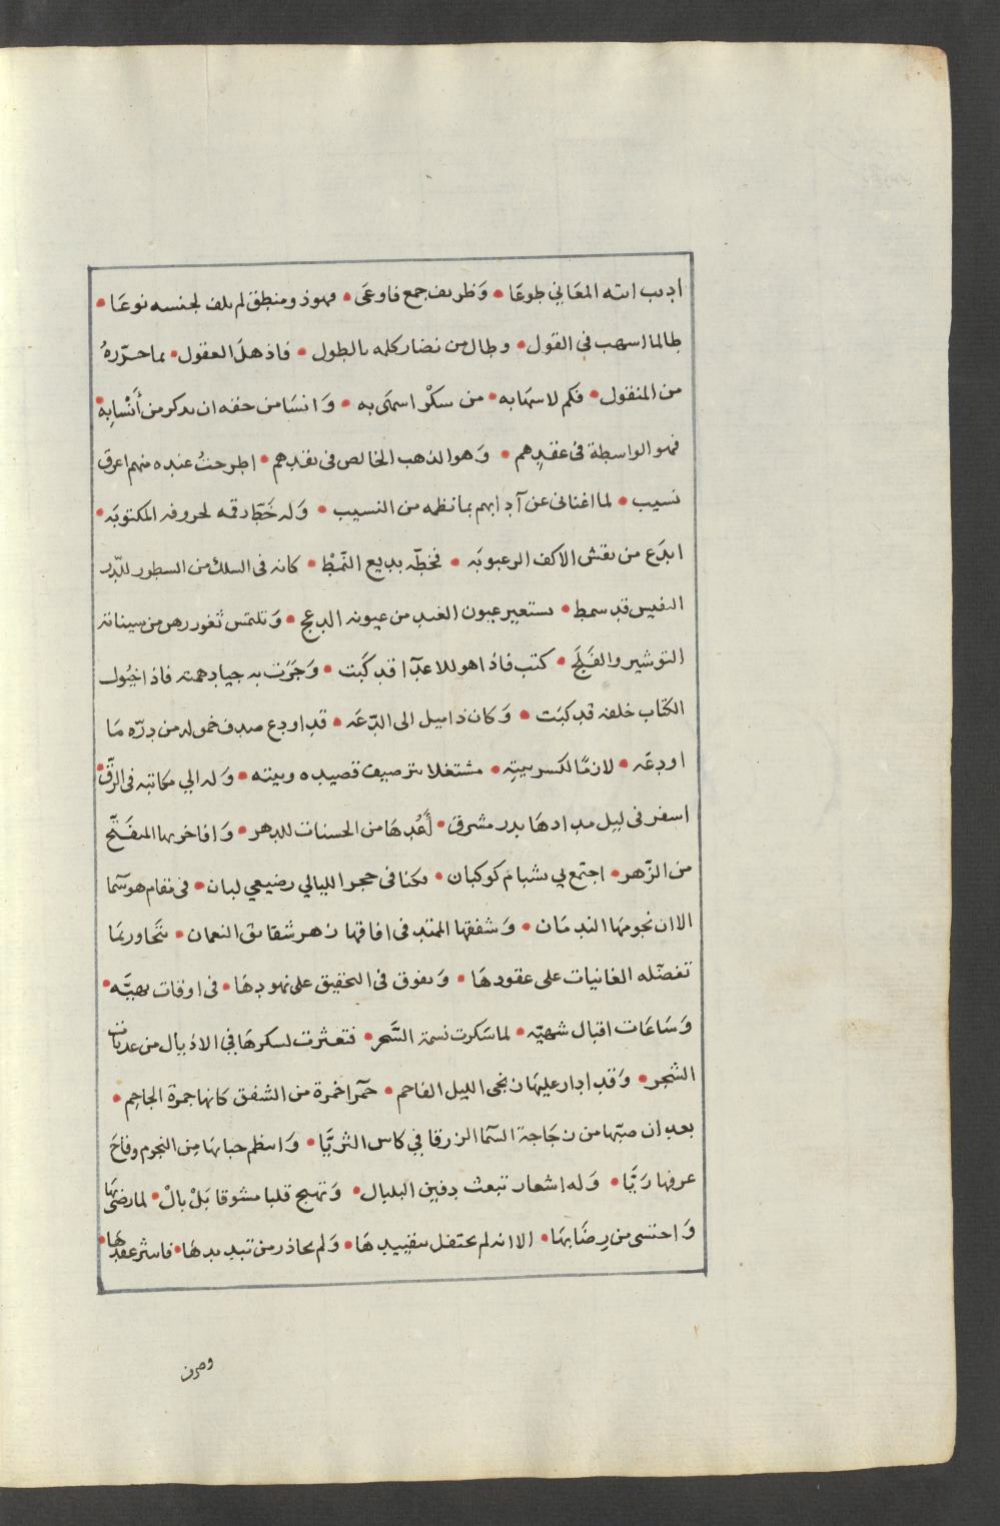 أديب اتته المعَاني طوعَا • وَظريف جمع فاوعَى • فهوذ ومنطق لم يلف لجنسه نوعَا •
طالما اسهب في القول • وطال من نضار كلمه بالطول • فاذهلَ العقول • بما حرّرهُ
من المنقول • فكم لاسهَابه • من سكْر اسمَى به • وَانسَا من حقه ان يذكر من أَنْسابِهِ •
فهو الواسطة في عقدِهم • وَهو الذهب الخالص في نقدِهم • اطرحتُ عنده منهم اعرق
نسيب • لما اغنانى عن آدابهم بما نظمه من النسيب • وَله خَطّ رقمه لحروفه المكتوبَه •
ابدَع من نقش الاكف الرعبوبَه • فخطّه بديع النّمَطْ • كانه فى السلك من السطور للدّر
النفيس قد سمط • يستعير عيون الغيد من عيونه الدعج • وَتلتمس ثغورهن من سيناته
التوشير والفَلَج • كتب فاذا هو للاعدَآ قد كَبت • وَجَرَت به جياد همته فاذا خيُول
الكتّاب خلفه قد كبَت • وَكان ذا ميل الى الدّعَه • قد اودع صدف خموله من درّه مَا
اودعَه • لازمًا لكسر بيتِه • مشتغلا بترصيف قصيده وبيته • وَله الي مكاتبه في الرّق •
اسفر فى ليل مدادهَا بدر مشرق • أَعُدهَا من الحسنات للدهر • وَافاخر بها المفَتّح
من الزّهر • اجتمع بي بشبام كوكبان • وكنا فى حجر الليالي رضيعي لبان • في مقام هو سما
الا ان نجومهَا الندمَان • وَشفقها الممتد فى افاقها زهر شقائق النعمان • نتَحاور بمَا
تفصّله الغانيات على عقودهَا • وَيفوق فى التحقيق على نهودهَا • في اوقات بهيَّه •
وَسَاعَات اقبال شهيّه • لما سَكرت نسمة السَّحر • فتعثرت لسكرهَا في الاذيال من عذبات
الشجر • وَقد ادار عليهَا زنجى الليل الفاحم • حمَرا خمرة من الشفق كانها جمرة الجاحِم •
بعد ان صبّها من زجَاجة السّما الزرقا في كاس الثريَّا • وَانتظم حبابهَا مِن النجوم وفاحَ
عرفها رَيَّا • وَله اشعار تبعث دفين البلبال • وَتهيج قلبا مشوقا بَلْ بالْ • لما رضى بها
وَاحتسى من رِضَابهَا • الا انه لم يحتفل بتقييدهَا • وَلم يحاذر من تبديدهَا • فانتثر عقدهَا •
وصرف